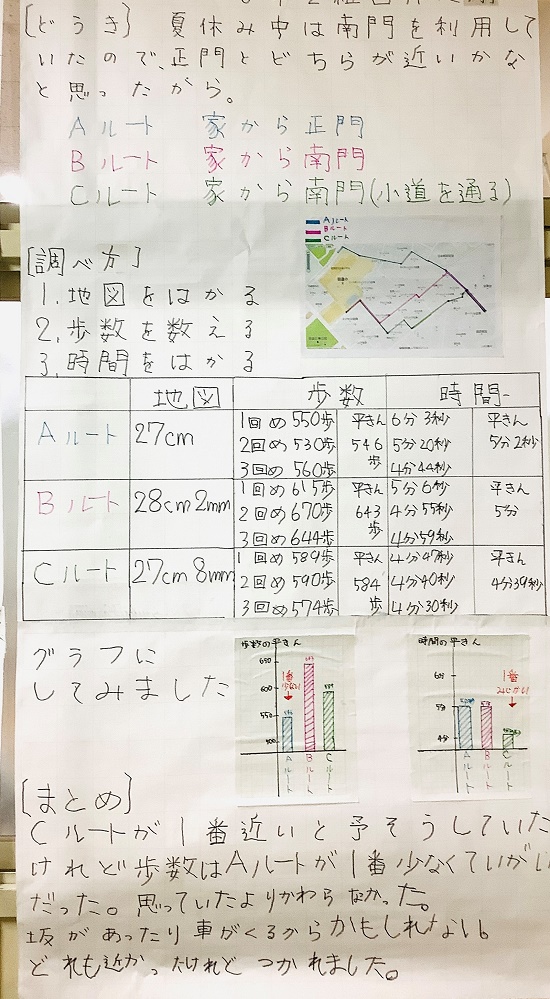 [どうき] 夏休み中は南門を利用して
いたので、正門とどちらが近いかな
と思ったから。
Aルート 家から正門
Bルート 家から南門
Cルート 家から南門(小道を通る)
Aルート
Bルート
Cルート
[調べ方]
1.地図をはかる
2.歩数を数える
3.時間をはかる
地図 歩数 時間
Aルート 27cm 1回め550歩 平きん 6分3秒 平きん
2回め530歩 546 5分20秒 5分2秒
3回め560歩 歩 4分44秒
Bルート 28cm2mm 1回め615歩 平きん 5分6秒 平きん
2回め670歩 643 4分55秒 5分
3回め644歩 歩 4分59秒
Cルート 27cm8mm 1回め589歩 平きん 4分47秒 平きん
2回め590歩 584 4分40秒 4分39秒
3回め574歩 歩 4分30秒
グラフに
してみました
歩数の平きん
650
600
550
500
1番
少ない
Aルート
Bルート
Cルート
時間の平きん
6分
5分
4分
1番
みじかい
Aルート
Bルート
Cルート
[まとめ]
Cルートが1番近いと予そうしていた
けれど歩数はAルートが1番少なくていがい
だった。思っていたよりかわらなかった。
坂があったり車がくるからかもしれない。
どれも近かったけれどつかれました。